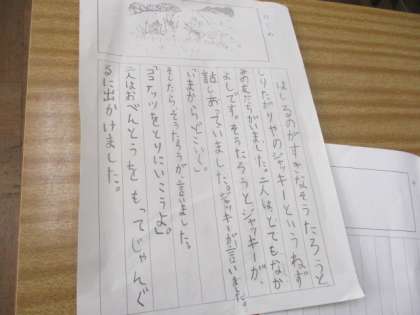 はじめ
はしるのがすきなぞうたろうと
しりたがりやのジャッキーというねず
みの友だちがいました。二人は、とてもなか
よしです。ぞうたろうとジャッキーが、
話しあっていました。ジャッキーが言いました。
「いまからどこいく。」
そしたら、ぞうたろうが、言いました。
「ココナッツをとりにいこうよ。」
二人はおべんとうをもってじゃんぐ
るに出かけました。